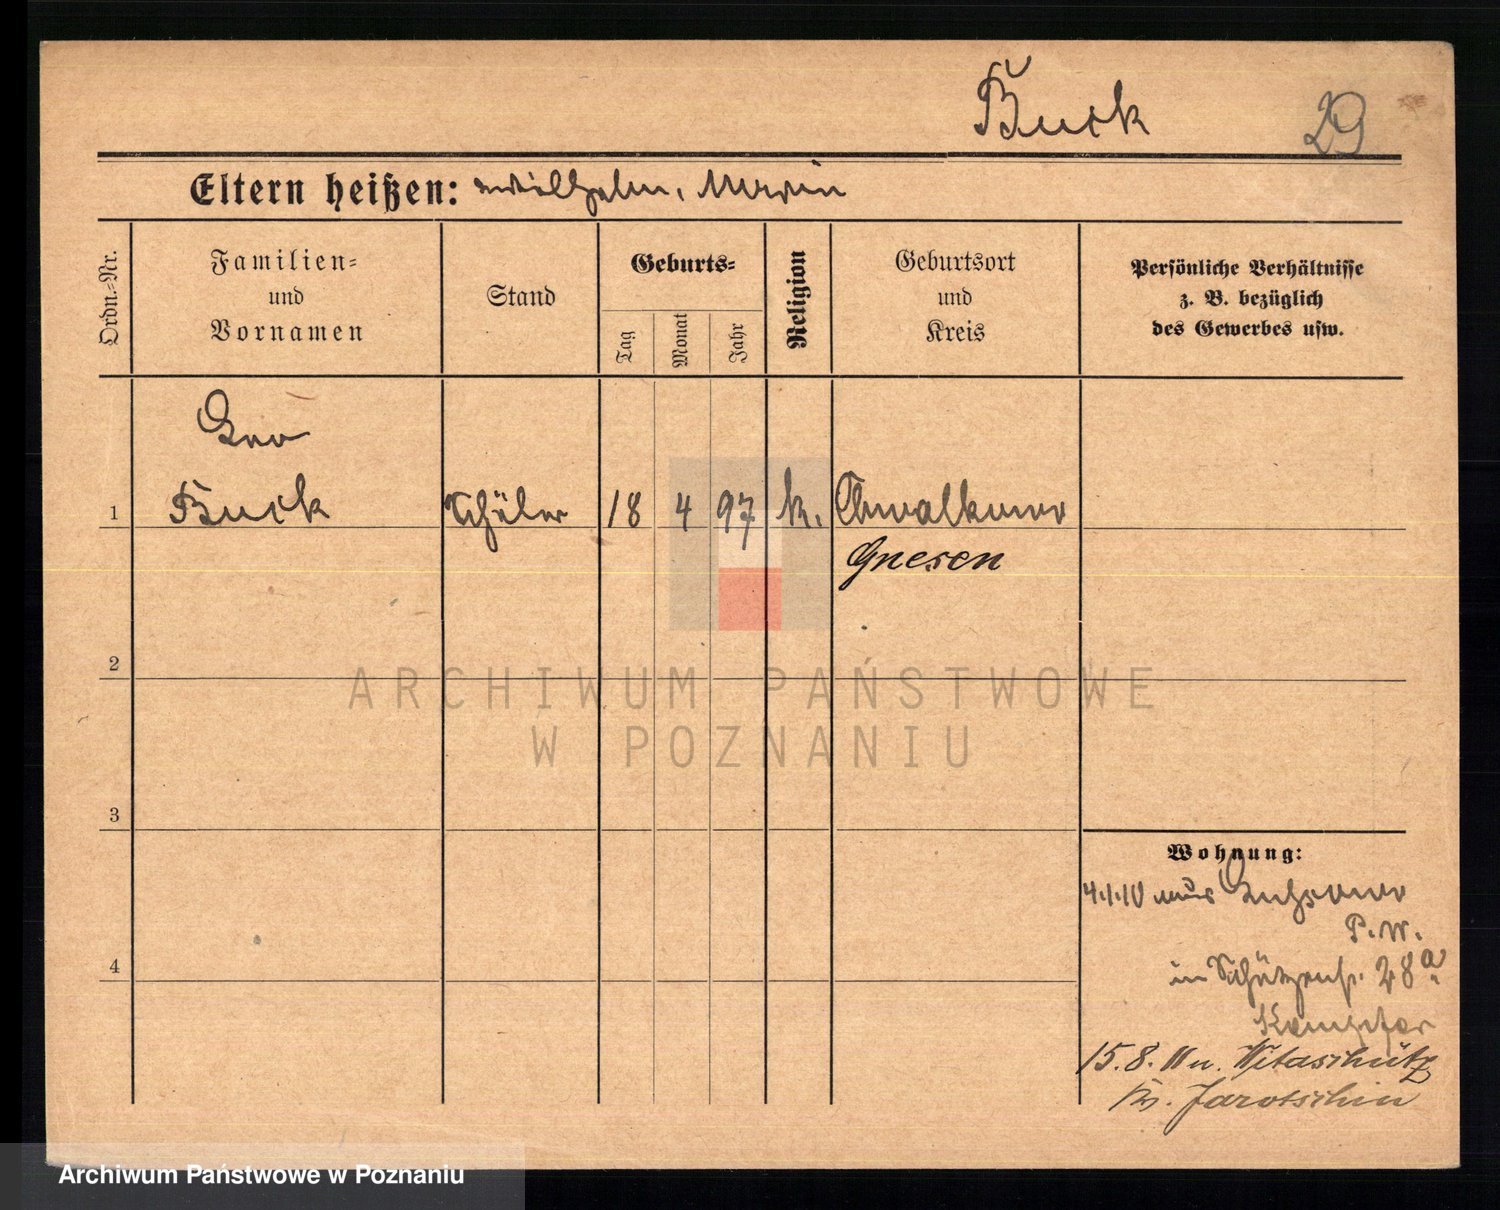 Buck 29
Eltern heißen: Wilhelm, Maria
Ordn.-Nr.
Familien-
und
Vornamen
Stand
Geburts-
Tag
Monat
Jahr
Religion
Geburtsort
und
Kreis
Persönliche Verhältnisse
z. B. bezüglich
des Gewerbes usw.
Leo
1 Buck Schüler 18 4 97 k. Chwalkowo
Gnesen
2
3
4
Wohnung:
4.1.10
P. W.
in Schützenstr. 28a
15.8.11 n. Witaschütz
Kr. Jarotschin
ARCHIWUM PAŃSTWOWE
W POZNANIU
Archiwum Państwowe w Poznaniu